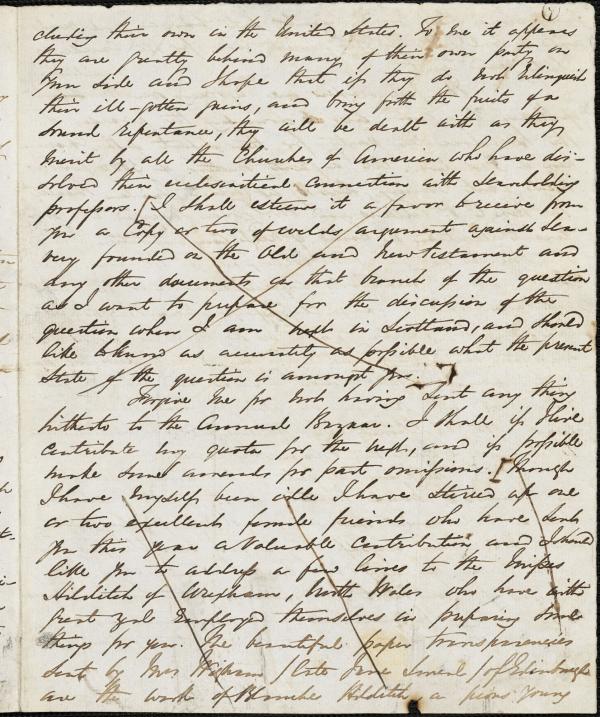 cluding their own in the United States. To me it appears
they are greatly behind many of their own party on
your side and I hope that if they do not relinquish
their ill-gotten gains, and bring forth the fruits of a
sound repentance, they will be dealt with as they
merit by all the Churches of America who have dis-
solved their ecclesiastical connection with slaveholding
professors. [I shall esteem it a favor to receive from
you a Copy or two of Welds argument against Sla-
very founded on the Old and New Testament and
any other documents on that branch of the question
as I want to prepare for the discussion of the
question when I am next in Scotland, and should
like to know as accurately as possible what the present
State of the question is amongst you.]
Forgive me for not having sent any thing
hitherto to the Annual Bazaar. I shall if I live
contribute my quota for the next, and if possible
make some amends for past omissions. [Though
I have myself been idle I have stirred up one
or two excellent female friends who have sent
you this year a valuable contribution and I should
like you to address a few lines to the Misses
Hilditch of Wrexham, North Wales who have with
great zeal employed themselves in preparing some
things for you. The beautiful paper transparencies
sent by Mrs Wigham (late Jane Smeal) of Edinburgh
are the work of Blanche Hilditch a pious young